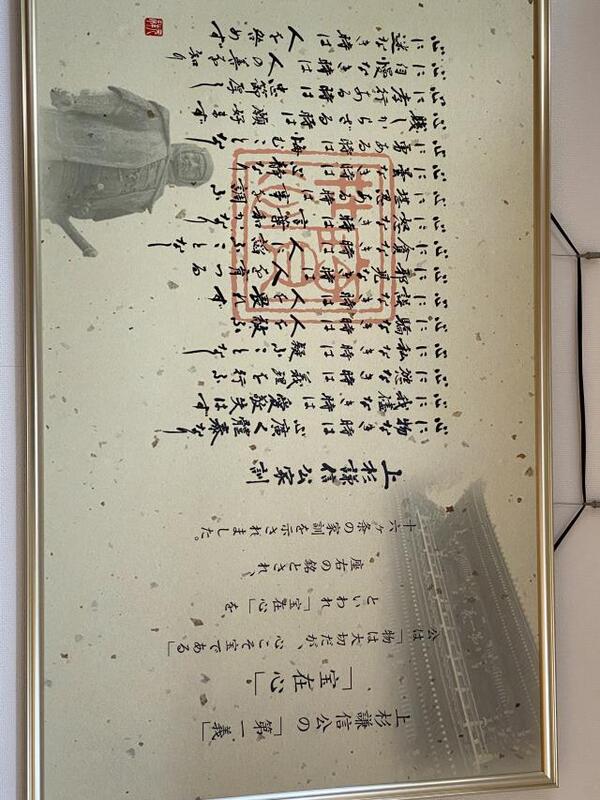 上杉謙信公の「第一義」
「宝在心」
公は「物は大切だが、心こそ宝である」
といわれ「宝在心」を
座右の銘とされ、
十六ヶ条の家訓を示されました。
上杉謙信公家訓
心に物なき時は心廣く體泰なり
心に我儘なき時は愛敬失はず
心に慾なき時は義理を行ふ
心に私なき時は疑ふことなし
心に驕なき時は人を敬ふ
心に誤なき時は人を畏れず
心に邪見なき時は人を育つる
心に貪なき時は人に諂ふことなし
心に怒なき時は言葉和かなり
心に堪忍ある時は事を調ふ
心に曇なき時は心静なり
心に勇ある時は悔むことなし
心賤しからざる時は願好まず
心に孝行ある時は忠節厚し
心に自慢なき時は人の善を知り
心に迷なき時は人を咎めず